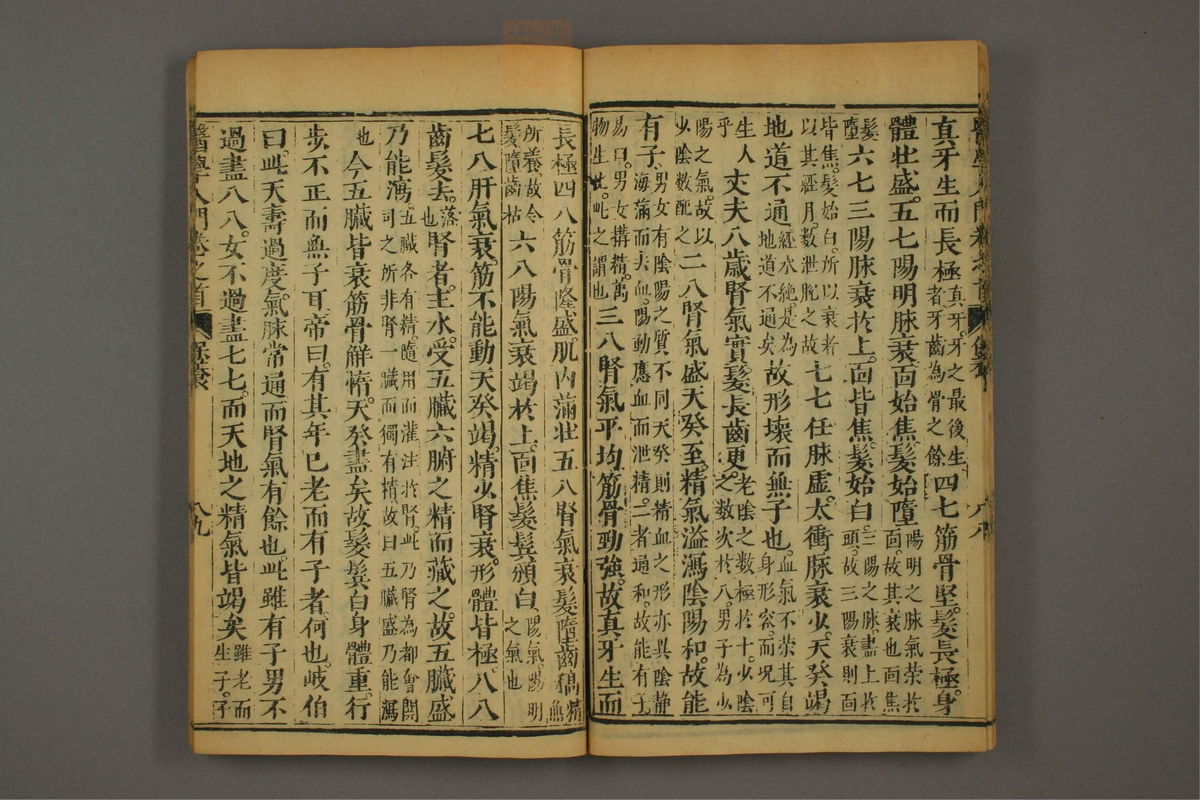 真牙生而長極真牙牙之最後生者牙齒為骨之餘四七筋骨堅髮長極身
體壯盛五七陽明脉衰面始焦髮始墮陽明之脉氣榮於面故其衰也面焦
髮墮六七三陽脉衰於上面皆焦髮始白三陽之脉盡上於頭故三陽衰則面
皆焦髮始白所以衰者以其經月數泄脫之故七七任脉虛太衝脉衰少天癸竭
地道不通經水絕是為地道不通矣故形壞而無子也血氣不榮其身形容而況可
生人乎丈夫八歲腎氣實髮長齒更老陰之數極於十少陰之數次於八男子為少
陽之氣故以少陰數配之二八腎氣盛天癸至精氣溢瀉陰陽和故能
有子男女有陰陽之質不同天癸則精血之形亦異陰靜海滿而去血陽動應血而泄精二者通和故能有子
易曰男女搆精萬物生化此之謂也三八腎氣平均筋骨勁強故真牙生而
醫學入門卷之首 八八
長極四八筋骨隆盛肌肉滿壯五八腎氣衰髮墮齒稿精無
所養故令髮墮齒枯六八陽氣衰竭於上面焦髮鬂頒白陽氣陽明之氣也
七八肝氣衰筋不能動天癸竭精少腎衰形體皆極八八
齒髮去落也腎者主水受五臟六腑之精而藏之故五臟盛
乃能瀉五臟各有精隨用而灌注於腎此乃腎為都會關司之所非腎一臟而獨有精故曰五臟盛乃能瀉
也今五臟皆衰筋骨觧惰天癸盡矣故髮鬂白身體重行
步不正而無子耳帝曰有其年已老而有子者何也岐伯
曰此天壽過度氣脉常通而腎氣有餘也此雖有子男不
過盡八八女不過盡七七而天地之精氣皆竭矣雖老而生子子
醫學入門卷之首 八九